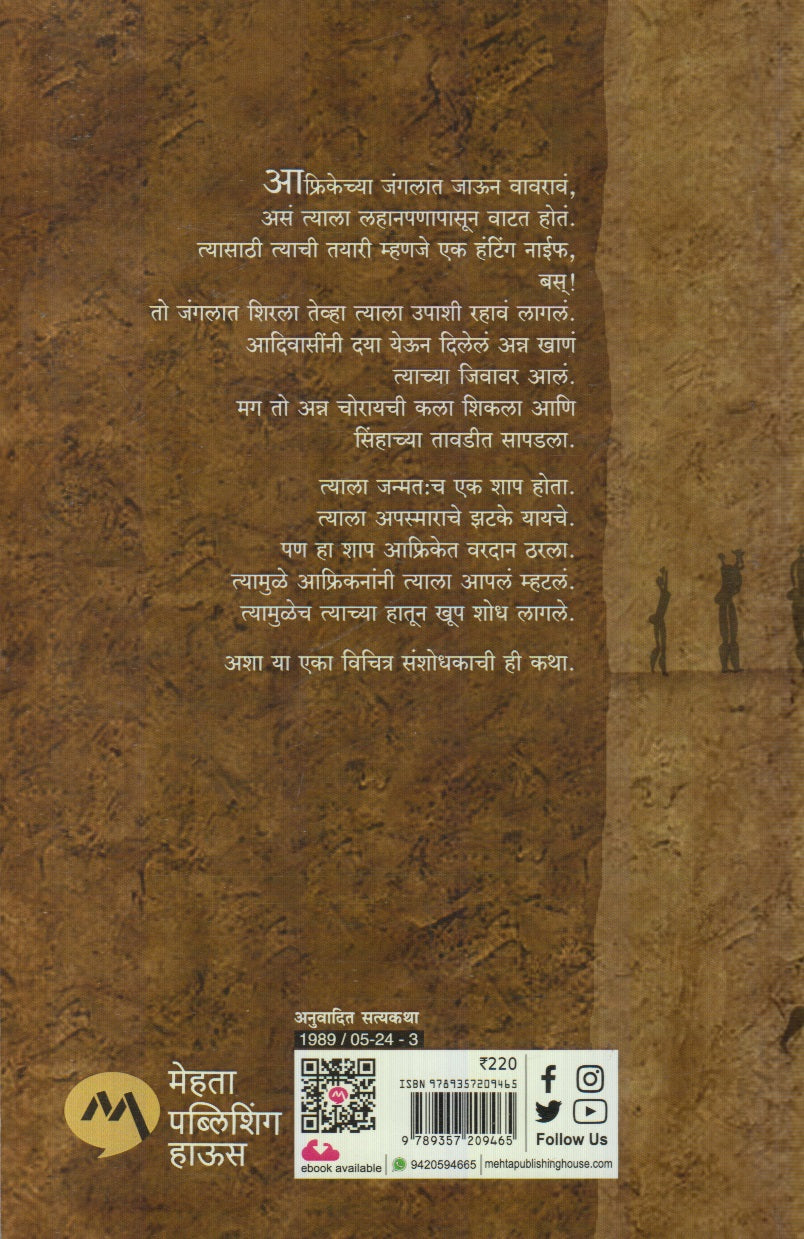 आफ्रिकेच्या जंगलात जाऊन वावरावं,
असं त्याला लहानपणापासून वाटत होतं.
त्यासाठी त्याची तयारी म्हणजे एक हंटिंग नाईफ,
बस्!
तो जंगलात शिरला तेव्हा त्याला उपाशी रहावं लागलं.
आदिवासींनी दया येऊन दिलेलं अन्न खाणं
त्याच्या जिवावर आलं.
मग तो अन्न चोरायची कला शिकला आणि
सिंहाच्या तावडीत सापडला.
त्याला जन्मत:च एक शाप होता.
त्याला अपस्माराचे झटके यायचे.
पण हा शाप आफ्रिकेत वरदान ठरला.
त्यामुळे आफ्रिकनांनी त्याला आपलं म्हटलं.
त्यामुळेच त्याच्या हातून खूप शोध लागले.
अशा या एका विचित्र संशोधकाची ही कथा.
अनुवादित सत्यकथा
1989 / 05-24 - 3
मेहता
पब्लिशिंग
हाऊस
₹220
ISBN 9789357209465
9 789357 209465
Follow Us
ebook available
9420594665
mehtapublishinghouse.com